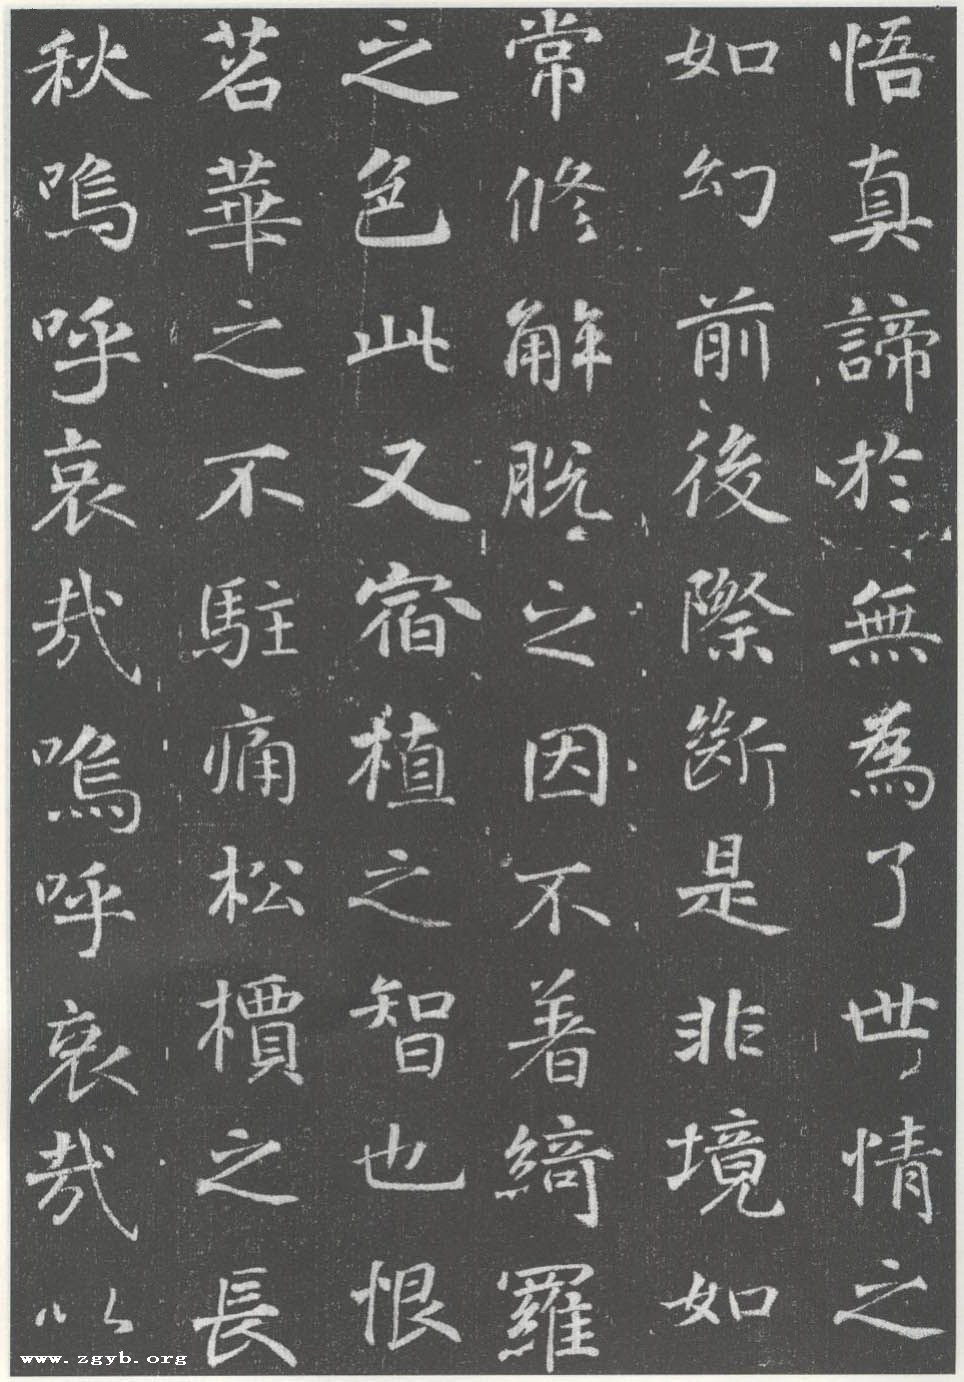 悟真諦於無為了世情之
如幻前後際斷是非境如
常修解脫之因不著綺羅
之色此又宿植之智也恨
茗華之不駐痛松檟之長
秋嗚呼哀哉嗚呼哀哉以
www.zgyb.org